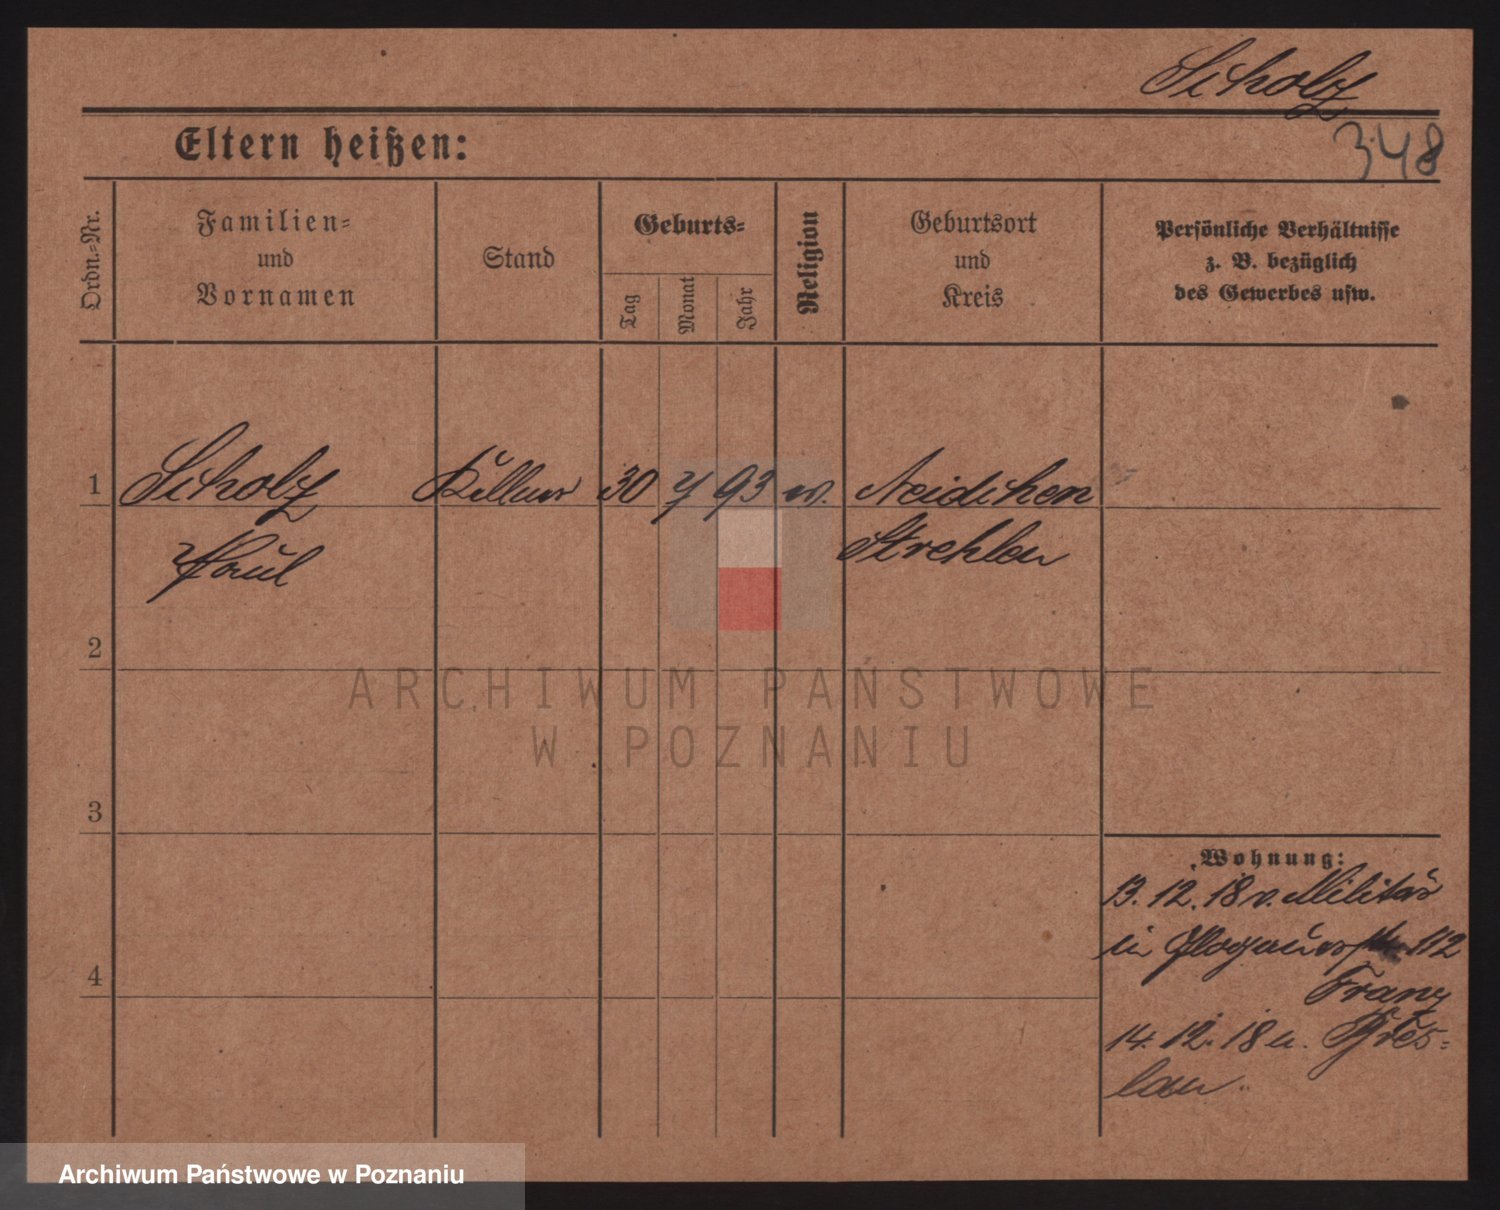 Scholz
348
Eltern heißen:
Ordn.-Nr.
Familien-
und
Vornamen
Stand
Geburts-
Tag
Monat
Jahr
Religion
Geburtsort
und
Kreis
Persönliche Verhältnisse
z. B. bezüglich
des Gewerbes usw.
1 Scholz Kellner 30 7 93 ev. Neidchen
Paul Strehlen
2
3
4
Wohnung:
13. 12. 18 v. Militär
in Glogauerstr. 112
Franz
14. 12. 18 n. Bres-
lau.
ARCHIWUM PAŃSTWOWE
W POZNANIU
Archiwum Państwowe w Poznaniu